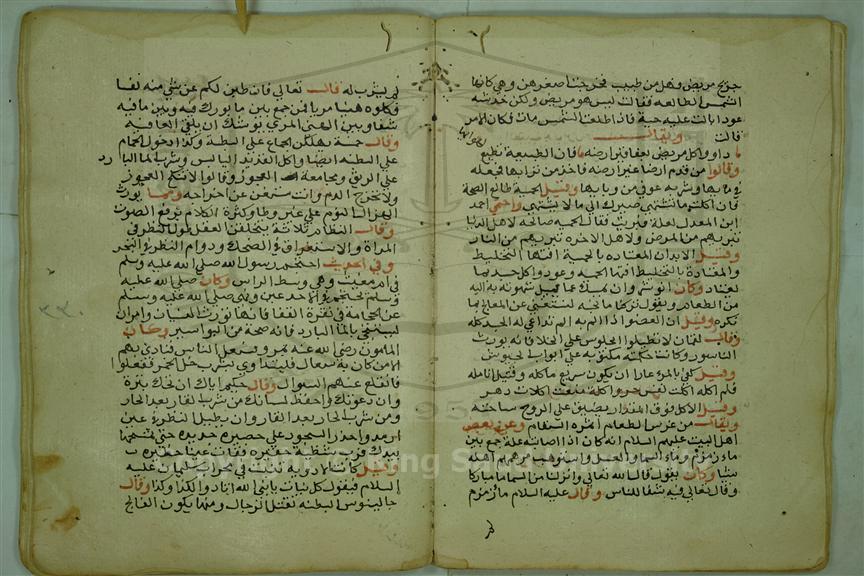 جزيج مريض وهل من طبيب فخرجت اصغرهن وهي كانها
الشمس الطالعة فقالت ليس هو مريض ولكن خدشته
عودا بالت عليه حية فاذا طلعت الشمس مات فكان الامر
قالت ويقال
ما داووا كل مريض بعقاقير ارضه فان الطبيعة تطلع
وقالوا من قدم ارضا غير ارضه فاخذ من ترابها فجعله
في مايها وشربه عوفي من وبايها وقيل الحمية طالع الصحة
فان اكلت ما تشتهي صيرك الى ما لا تشتهي واحتمى احمد
ابن المعدل لعلة فبري فقال الحمية صالحة لاهل الدنيا
تبريهم من المرض ولاهل الاخره تبريهم من النار
وقيل الابدان المعتاده بالحمية افتها التخليط
والمعتادة بالتخليط افتها الحمية وعودوا كل جسد بما
اعتاد وكان انوشروان يمسك عما تميل شهوته اليه
من الطعام ويقول تركنا ما نحبه لنستغني عن العلاج بما
نكره وقيل ان العضو اذا الم به الم تداعى له الجسد كله
وقال لقمان لا تطيلوا الجلوس على الخلا فانه يورث
الناسور وكانت حكمته مكتوبه على ابواب الحشوش
وقيل كفى بالمرء عارا ان يكون سريع ماكله وقتيل انامله
فلم اكلة اكلت نفس حر واكلة منعت اكلات دهر
وقيل الاكل فوق المقدار يضيق على الروح ساحته
ويقال من غرس الطعام اثمره السقام وعن بعض
اهل البيت عليهم السلام انه كان اذا اصابته علة جمع بين
ماء زمزم وماء السما والعسل واستوهب من مهر اهله
شيا وكان يقول قال الله تعالى وانزلنا من السماء ماء مباركا
وقال تعالى فيه شفا للناس وقال عليه السلام ما زمزم
لم يشرب له قال تعالى فان طبن لكم عن شي منه نفسا
فكلوه هنيا مريا فمن جمع بين ما بورك فيه وبين ما فيه
شفا وبين الهني المري يوشك ان يلقى العافية
وقال خمسة يهلكن الجماع على البطنة وكذا دخول الحمام
على البطنة ايضا واكل القديد اليابس وشرب الماء البارد
على الريق ومجامعة العجوز وقالوا لا تنكح العجوز
ولا تخرج الدم وانت مستغن عن اخراجه ومما يورث
الهزال النوم على غير وطا وكثرة الكلام برفع الصوت
وقال النظام ثلاثة يتخلفن العقل طول النظر في
المراة والاستغراق في الضحك ودوام النظر في البحر
وفي الحديث احتجم رسول الله صلى الله عليه وسلم
في ام مغيث وهي وسط الراس وكان صلى الله عليه
وسلم يحتجم في الاخدعين ونهى صلى الله عليه وسلم
عن الحجامة في نقرة القفا فانها تورث النسيان وامر ان
يستنجى بالماء البارد فانه صحة من البواسير وكان
المامون رضي الله عنه فسعل الناس فنادى بهم
الا من كان به سعال فليتداوى بشرب خل خمر ففعلوا
فانقطع عنهم السعال وقال حكيم اياك ان تحك بثرة
وان دعوتك واحفظ لسانك من شرب القار بعد الحار
ومن شرب الحار بعد القار وان يطيل النظر في عين
ارمد واحذر السجود على حصيرة جديدة حتى تمسحها
بيدك فرب شظية حقيرة فقات عينا خطيره
وقيل كانت الادوية تنبت في محراب سليمان عليه
السلام فيقول كل نبات يا نبي الله انا دوا لكذا وكذا وقال
جالينوس البطنة تقتل الرجال ومنها يكون الفالج